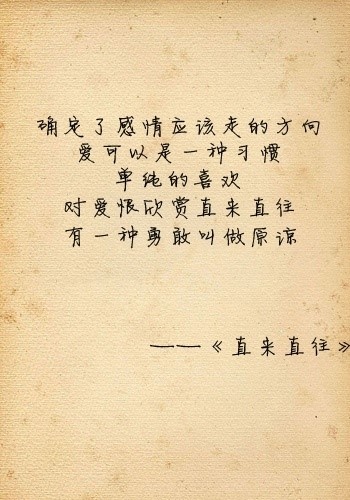 确定了感情应该走的方向
爱可以是一种习惯
单纯的喜欢
对爱恨欣赏直来直往
有一种勇敢叫做原谅
——《直来直往》